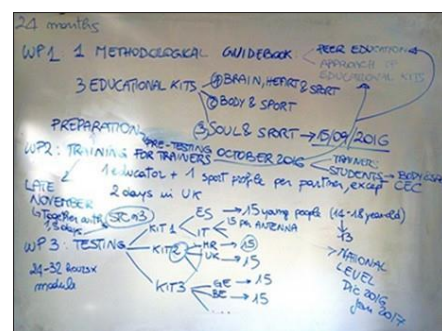 24 months
WP1: 1 METHODOLOGICAL GUIDEBOOK: PEER EDUCATION
APPROACH OF EDUCATIONAL KITS
3 EDUCATIONAL KITS
① BRAIN, HEART & SPORT
② BODY & SPORT
③ SOUL & SPORT → 15/09/2016
PREPARATION, PRE-TESTING
WP2: TRAINING FOR TRAINERS OCTOBER 2016
TRAINERS
STUDENTS → BODY &
1 educator + 1 sport people per partner, except CEC
LATE NOVEMBER
2 days in UK
Together with
days
WP3: TESTING
24-32 hours x module
KIT 1
ES → 15 young people (14-18 years old)
IT → 15 per ANTENNA
KIT 2
HR → 15
UK → 15
KIT 3
GE → 15
BE → 15
....
→ NATIONAL LEVEL
Dic 2016
2017